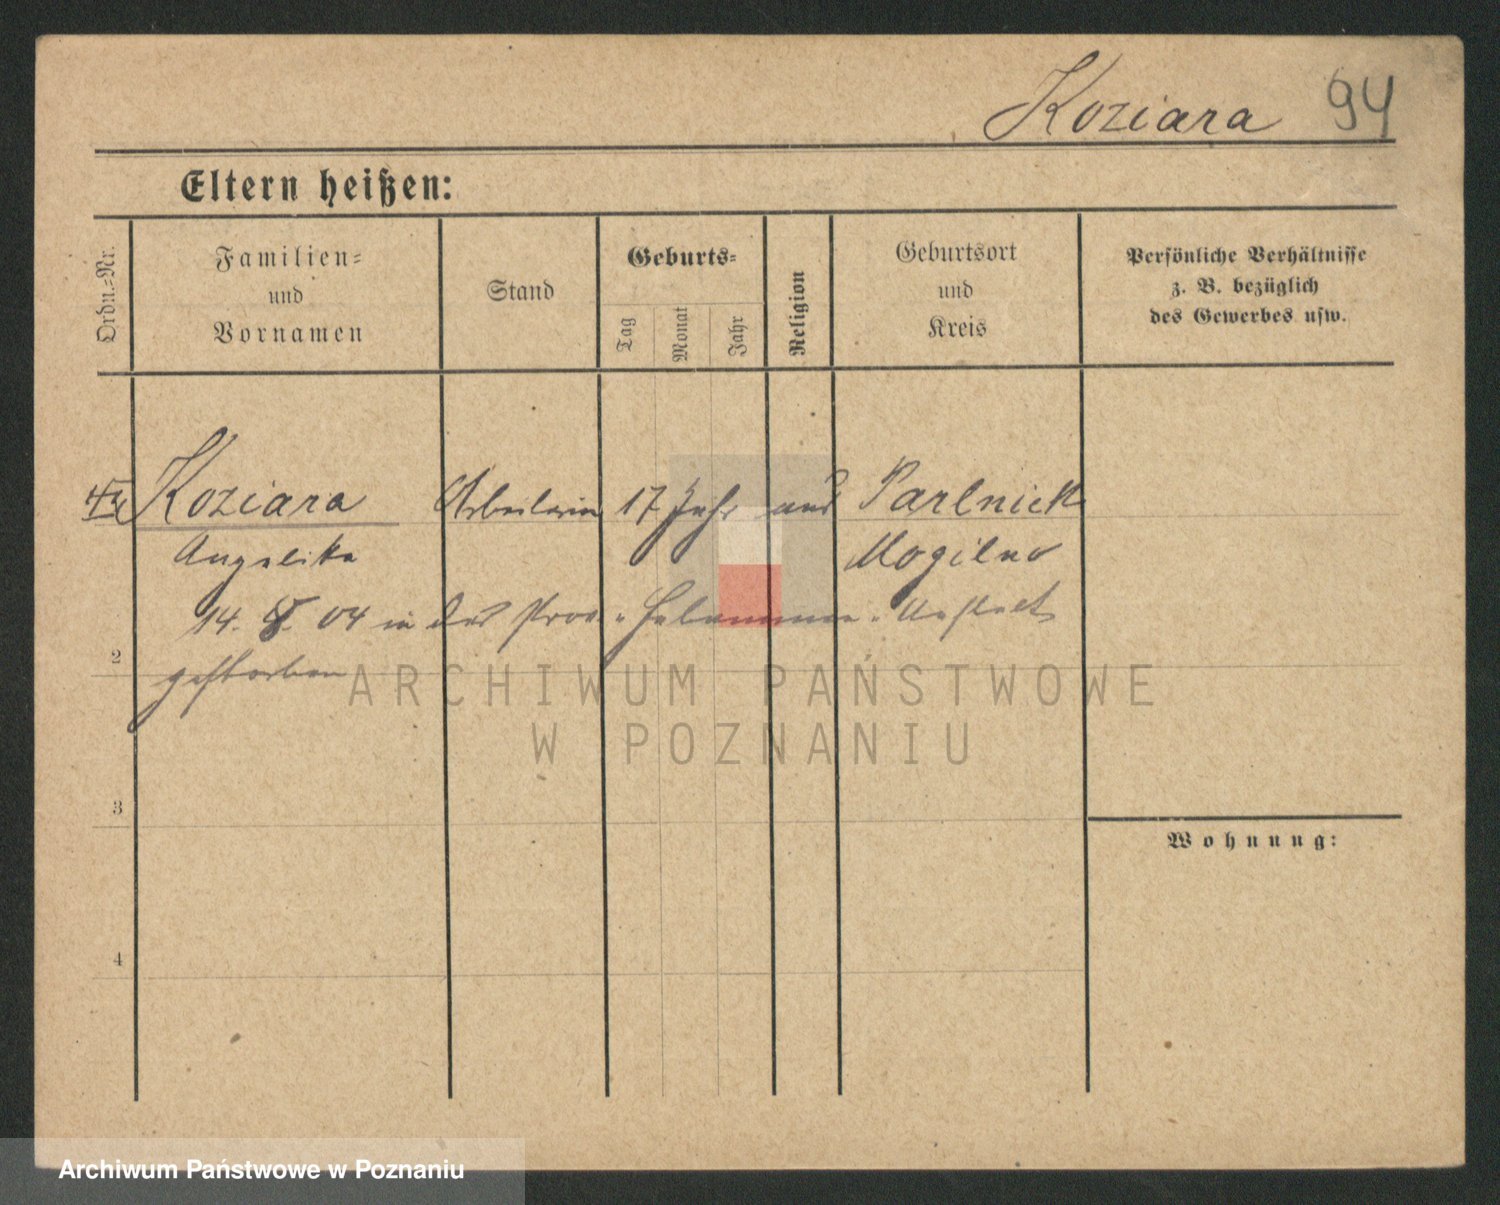 Koziara 94
Eltern heißen:
Ordn.-Nr.
Familien-
und
Vornamen
Stand
Geburts-
Tag
Monat
Jahr
Religion
Geburtsort
und
Kreis
Persönliche Verhältnisse
z. B. bezüglich
des Gewerbes usw.
Koziara Arbeiterin 17 Jahr aus
Angelika Mogilno
14. 04 in der Prov. - Hebammen - Anstalt
2
gestorben
ARCHIWUM PAŃSTWOWE
W POZNANIU
3
Wohnung:
4
Archiwum Państwowe w Poznaniu